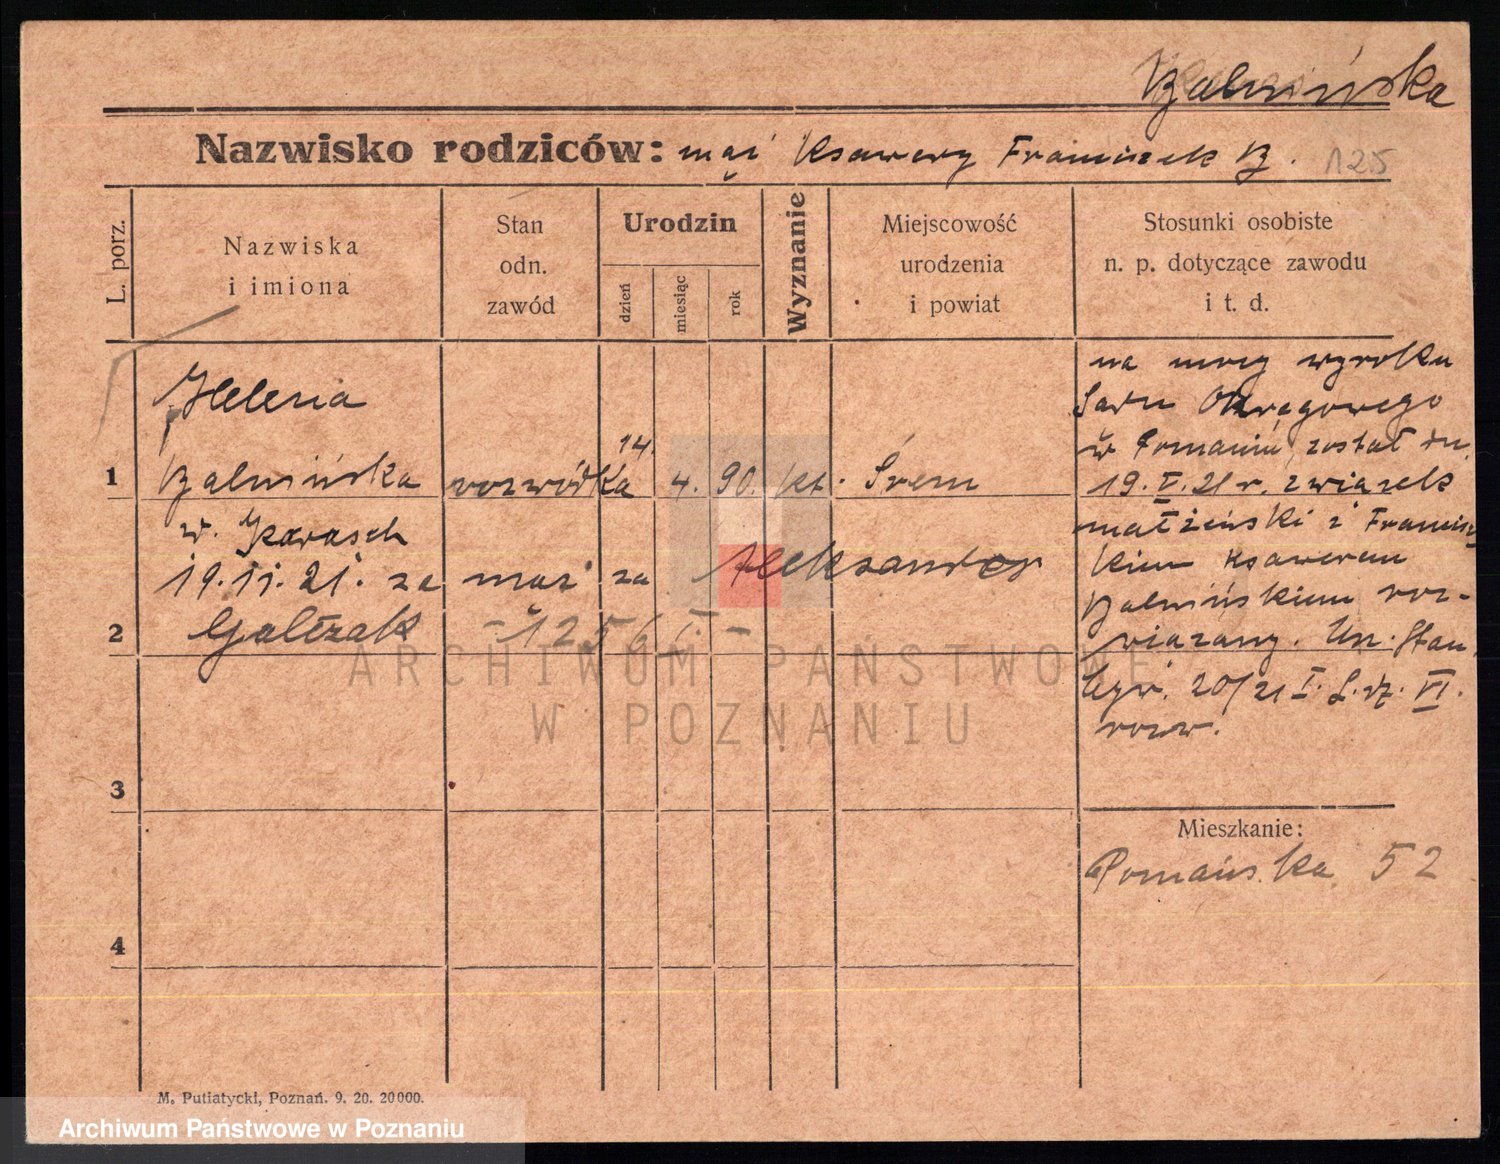 Balwińska
Nazwisko rodziców: mąż Ksawery Franciszek B. 125
L. porz.
Nazwiska
i imiona
Stan
odn.
zawód
Urodzin
dzień
miesiąc
rok
Wyznanie
Miejscowość
urodzenia
i powiat
Stosunki osobiste
n. p. dotyczące zawodu
i t. d.
Helena
1 Balwińska rozwódka 14. 4. 90. kt. Śrem
w.
19.11.21. za mąż za Aleksander
2 Galczak - 1256 I. -
3
4
na mocy wyroku
Sadu Okręgowego
w Poznaniu został dn.
19. V. 21 r. związek
małżeński z Francisz
kiem Ksawerem
Balwińskim roz-
wiązany. Un. Stan.
20/21 I. L. dz. VI.
rozw.
Mieszkanie:
Poznańska 52
M. Putiatycki, Poznań. 9. 20. 20000.
ARCHIWUM PAŃSTWOWE
W POZNANIU
Archiwum Państwowe w Poznaniu